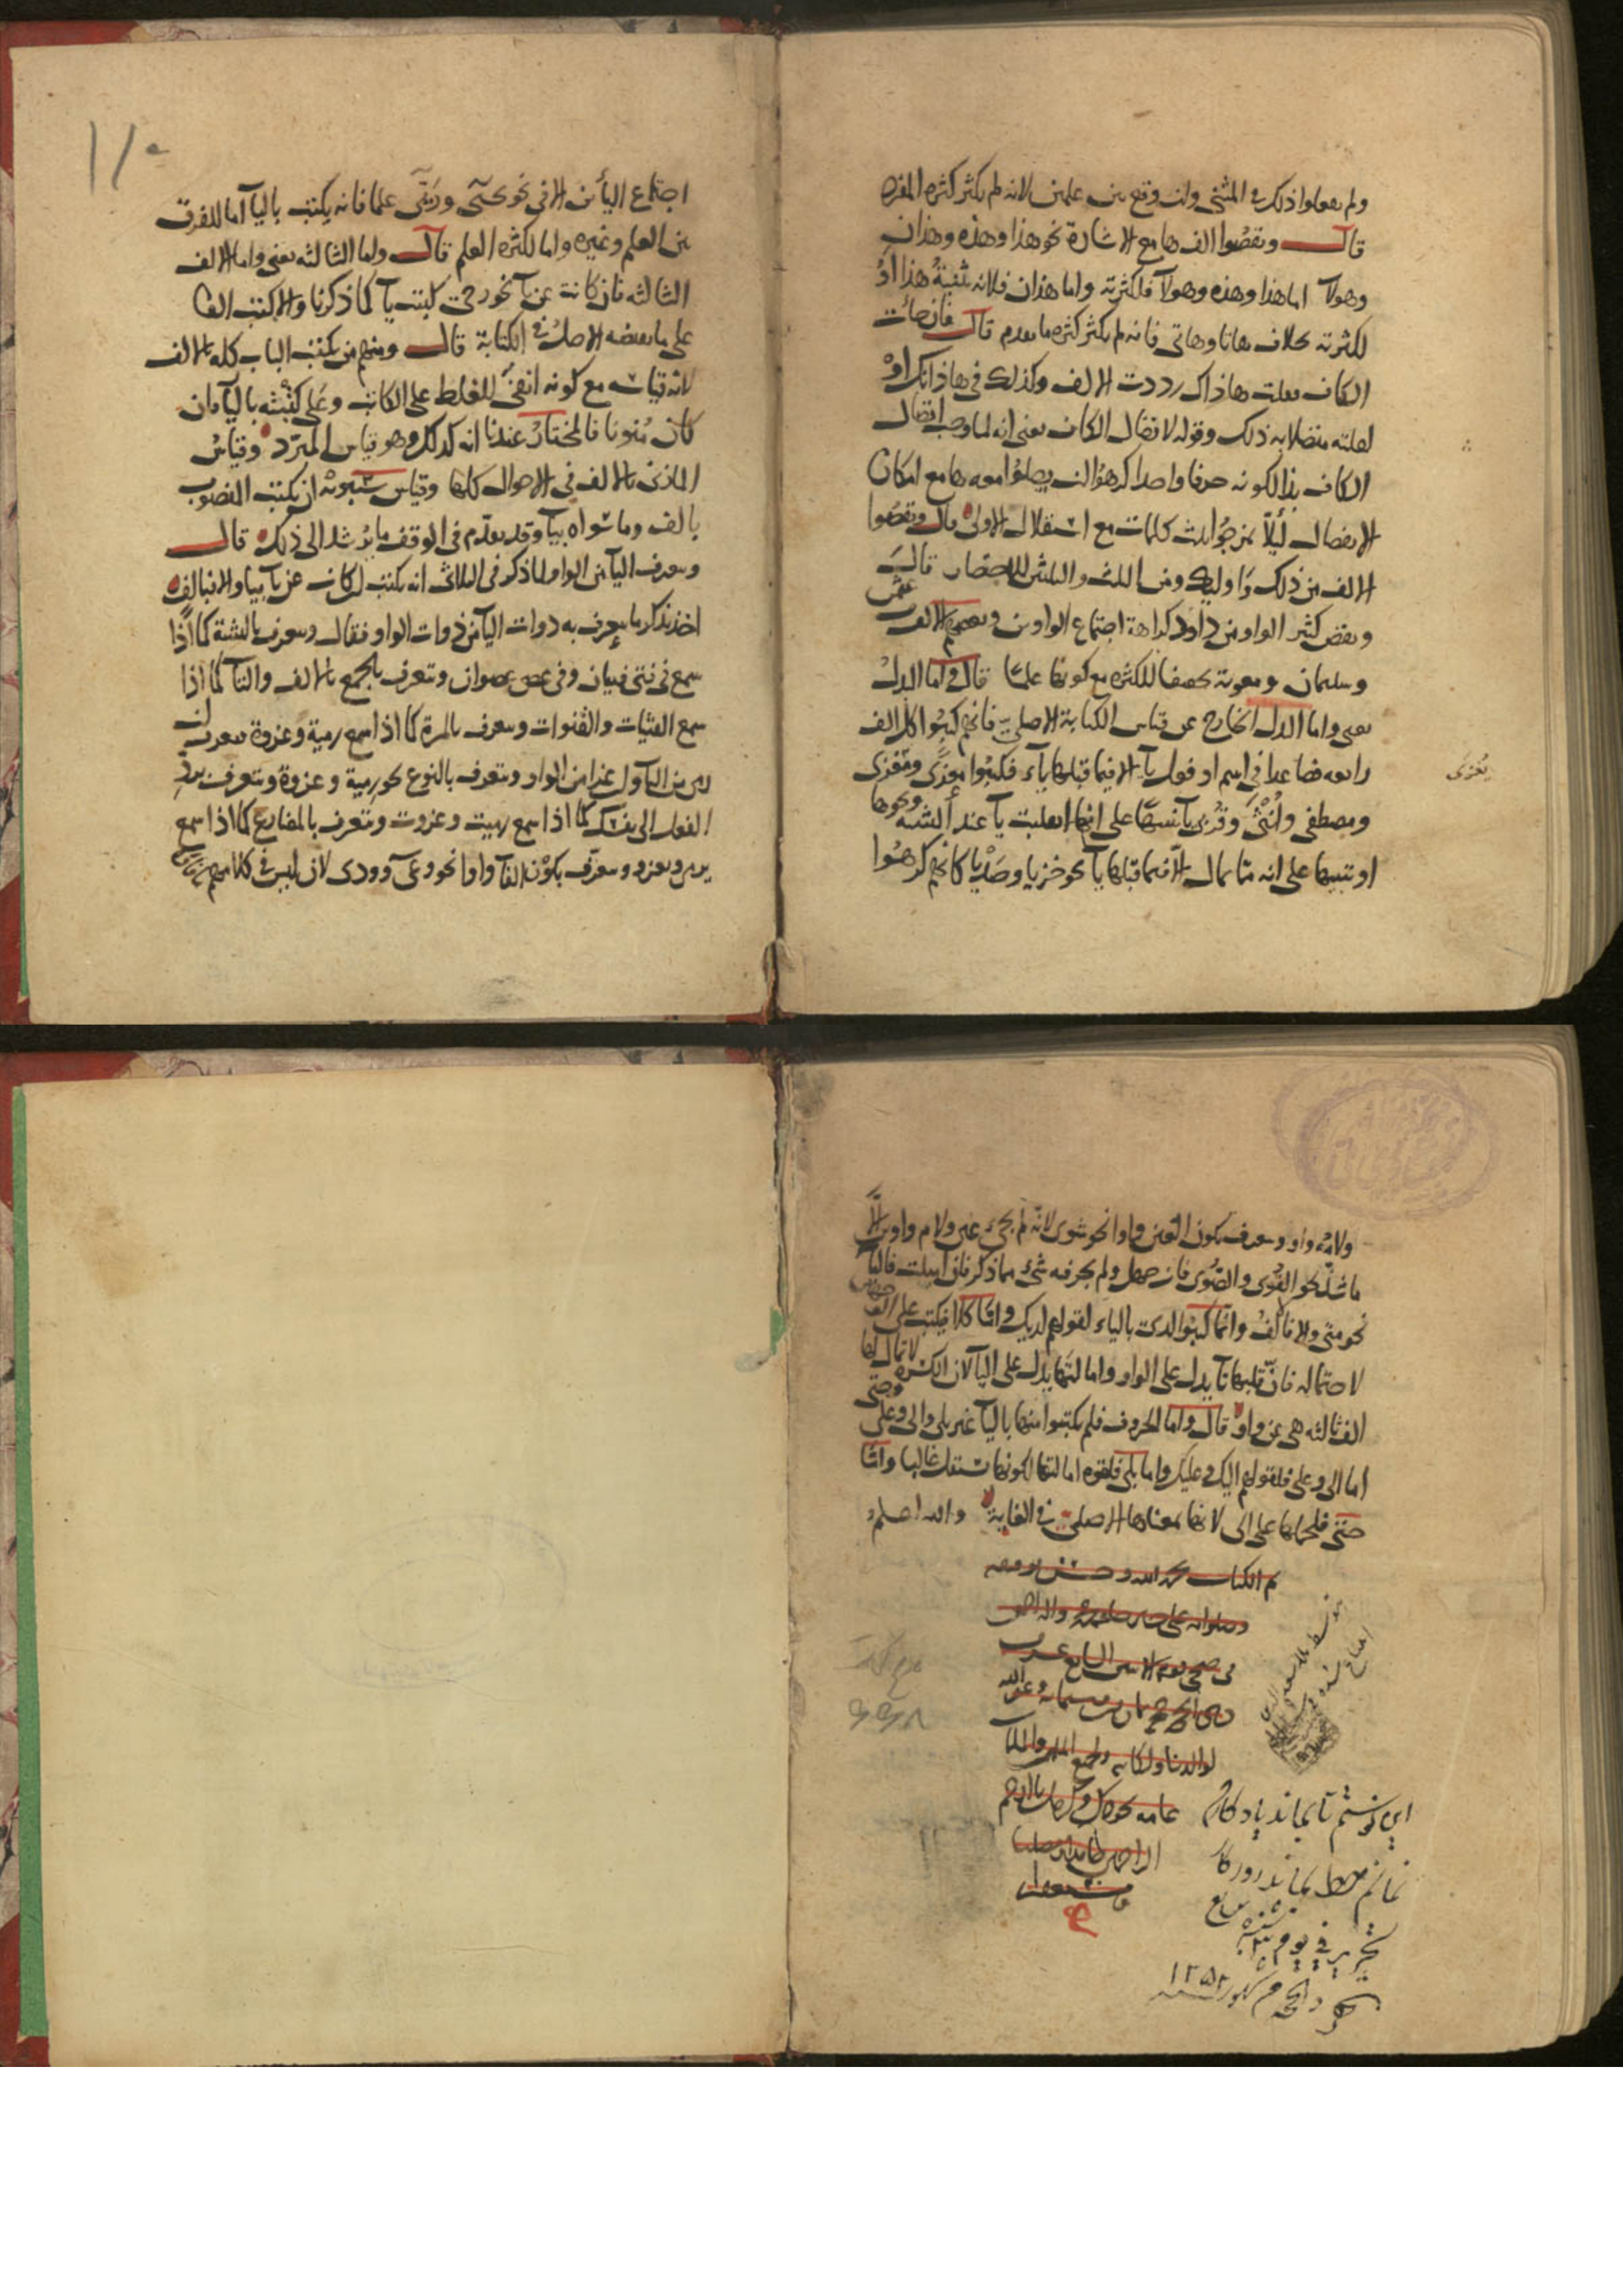 ولم يفعلوا ذلك في المثنى وان وقع بين علمين لانه لم يكثر كثرة المفرد
قال ونقصوا الف ها مع الاشارة نحو هذا وهذه وهذان
وهولآ اما هذا وهذه وهولآ فلكثرته واما هذان فلانه تثنية هذا او
لكثرته بخلاف هاتا وهاتى فانه لم يكثر كثرة ما تقدم قال فان جات
الكاف نقلت هاذاك رددت الالف وكذلك في هاذانك او
ذلك وقوله لاتصال الكاف يعنى انه لما وجب اتصال
الكاف بذا لكونه حرفا واحدا كرهوا ان يصلوا معه ها مع امكان
الانفصال ليلا يمزجوا ثلث كلمات مع استقلال الاولى قال ونقصوا
الالف من ذلك واوليك ومن الثلث والثلثين للاختصار قال
ونقص كثير الواو من داود كراهة اجتماع الواوين وبعضهم الالف من عثمن
وسليمان ومعوية تخفيفا للكثرة مع كونها علما قال واما البدل
يعنى واما البدل الخارج عن قياس الكتابة الاصلي فانهم كتبوا كل الف
رابعة فصاعدا في اسم او فعل يآ الا فيما قبلها ياء فكتبوا يغزى ومغزى
يغزى
ومصطفى وانثى وقربى يآ تنبيها على انها انقلبت يآ عند التثنية ونحوها
او تنبيها على انه مما تمال الا فيما قبلها يآ نحو خزيا وصديا كانهم كرهوا
١١٠
اجتماع اليأين الا في نحو يحيى وريى علما فانه يكتب باليآ اما للفرق
بين العلم وغيره واما لكثرة العلم قال واما الثالثة يعنى واما الالف
الثالثة فان كانت عن يآ نحو رحى كتبت يآ كما ذكرنا والا كتبت الفا
على ما يقتضيه الاصل في الكتابة قال ومنهم من يكتب الباب كله بالالف
لانه قياسه مع كونه انفى للغلط على الكاتب وعلى كتبته باليآ فان
كان منونا فالمختار عندنا انه كذلك وهو قياس المبرد وقياس
المازنى بالالف في الاحوال كلها وقياس سيبويه ان يكتب المنصوب
بالف وما سواه بيآ وقد تقدم في الوقف ما يرشد الى ذلك قال
وتعرف اليآ من الواو لما ذكر في الثلاثى انه يكتب ان كان عن يآ بيا والا فبالف
اخذ يذكر ما يعرف به ذوات اليآ من ذوات الواو فقال وتعرف بالتثنية كما اذا
سمع في فتى فتيان وفي عصى عصوان وتعرف بالجمع بالالف والتآ كما اذا
سمع الفتيات والقنوات وتعرف بالمرة كما اذا سمع رمية وغزوة فتعرف ان
رمى من اليآ وان غزا من الواو وتعرف بالنوع نحو رمية وغزوة وتعرف برد
الفعل الى نفسك كما اذا سمع رميت وغزوت وتعرف بالمضارع كما اذا سمع
يرمى ويغزو وتعرف بكون الفآ واوا نحو وعى وودى لان ليس في كلامهم
ولامه واو وتعرف بكون العين واوا نحو شوى لانه لم يجئ عين ولام واوين الا
ما شذ نحو القوى والصوى فان جهل ولم يعرف شئ مما ذكر فان اميلت فاليآ
نحو متى والا فالالف وانما كتبوا لدى بالياء لقولهم لديك واما كلا فيكتب على الوجهين
لاحتماله فان قلبها تآ يدل على الواو وامالتها يدل على اليآ لان الكسرة لا تمال لها
الف ثالثة هى عن واو قال واما الحروف فلم يكتبوا منها باليآ غير بلى والى وعلى وحتى
اما الى وعلى فلقولهم اليك وعليك واما بلى فلقوة امالتها لكونها تستقل غالبا واما
حتى فلحملها على الى لانها بمعناها الاصلي في الغاية والله اعلم
تم الكتاب بحمد الله وحسن توفيقه
وصلواته على محمد واله
لوالدينا ولكاتبه ولجميع
الراحمين
اين نوشتم تا بماند يادكار
نمانم خط بماند روزكار
تحرير في يوم
١٢٥٢